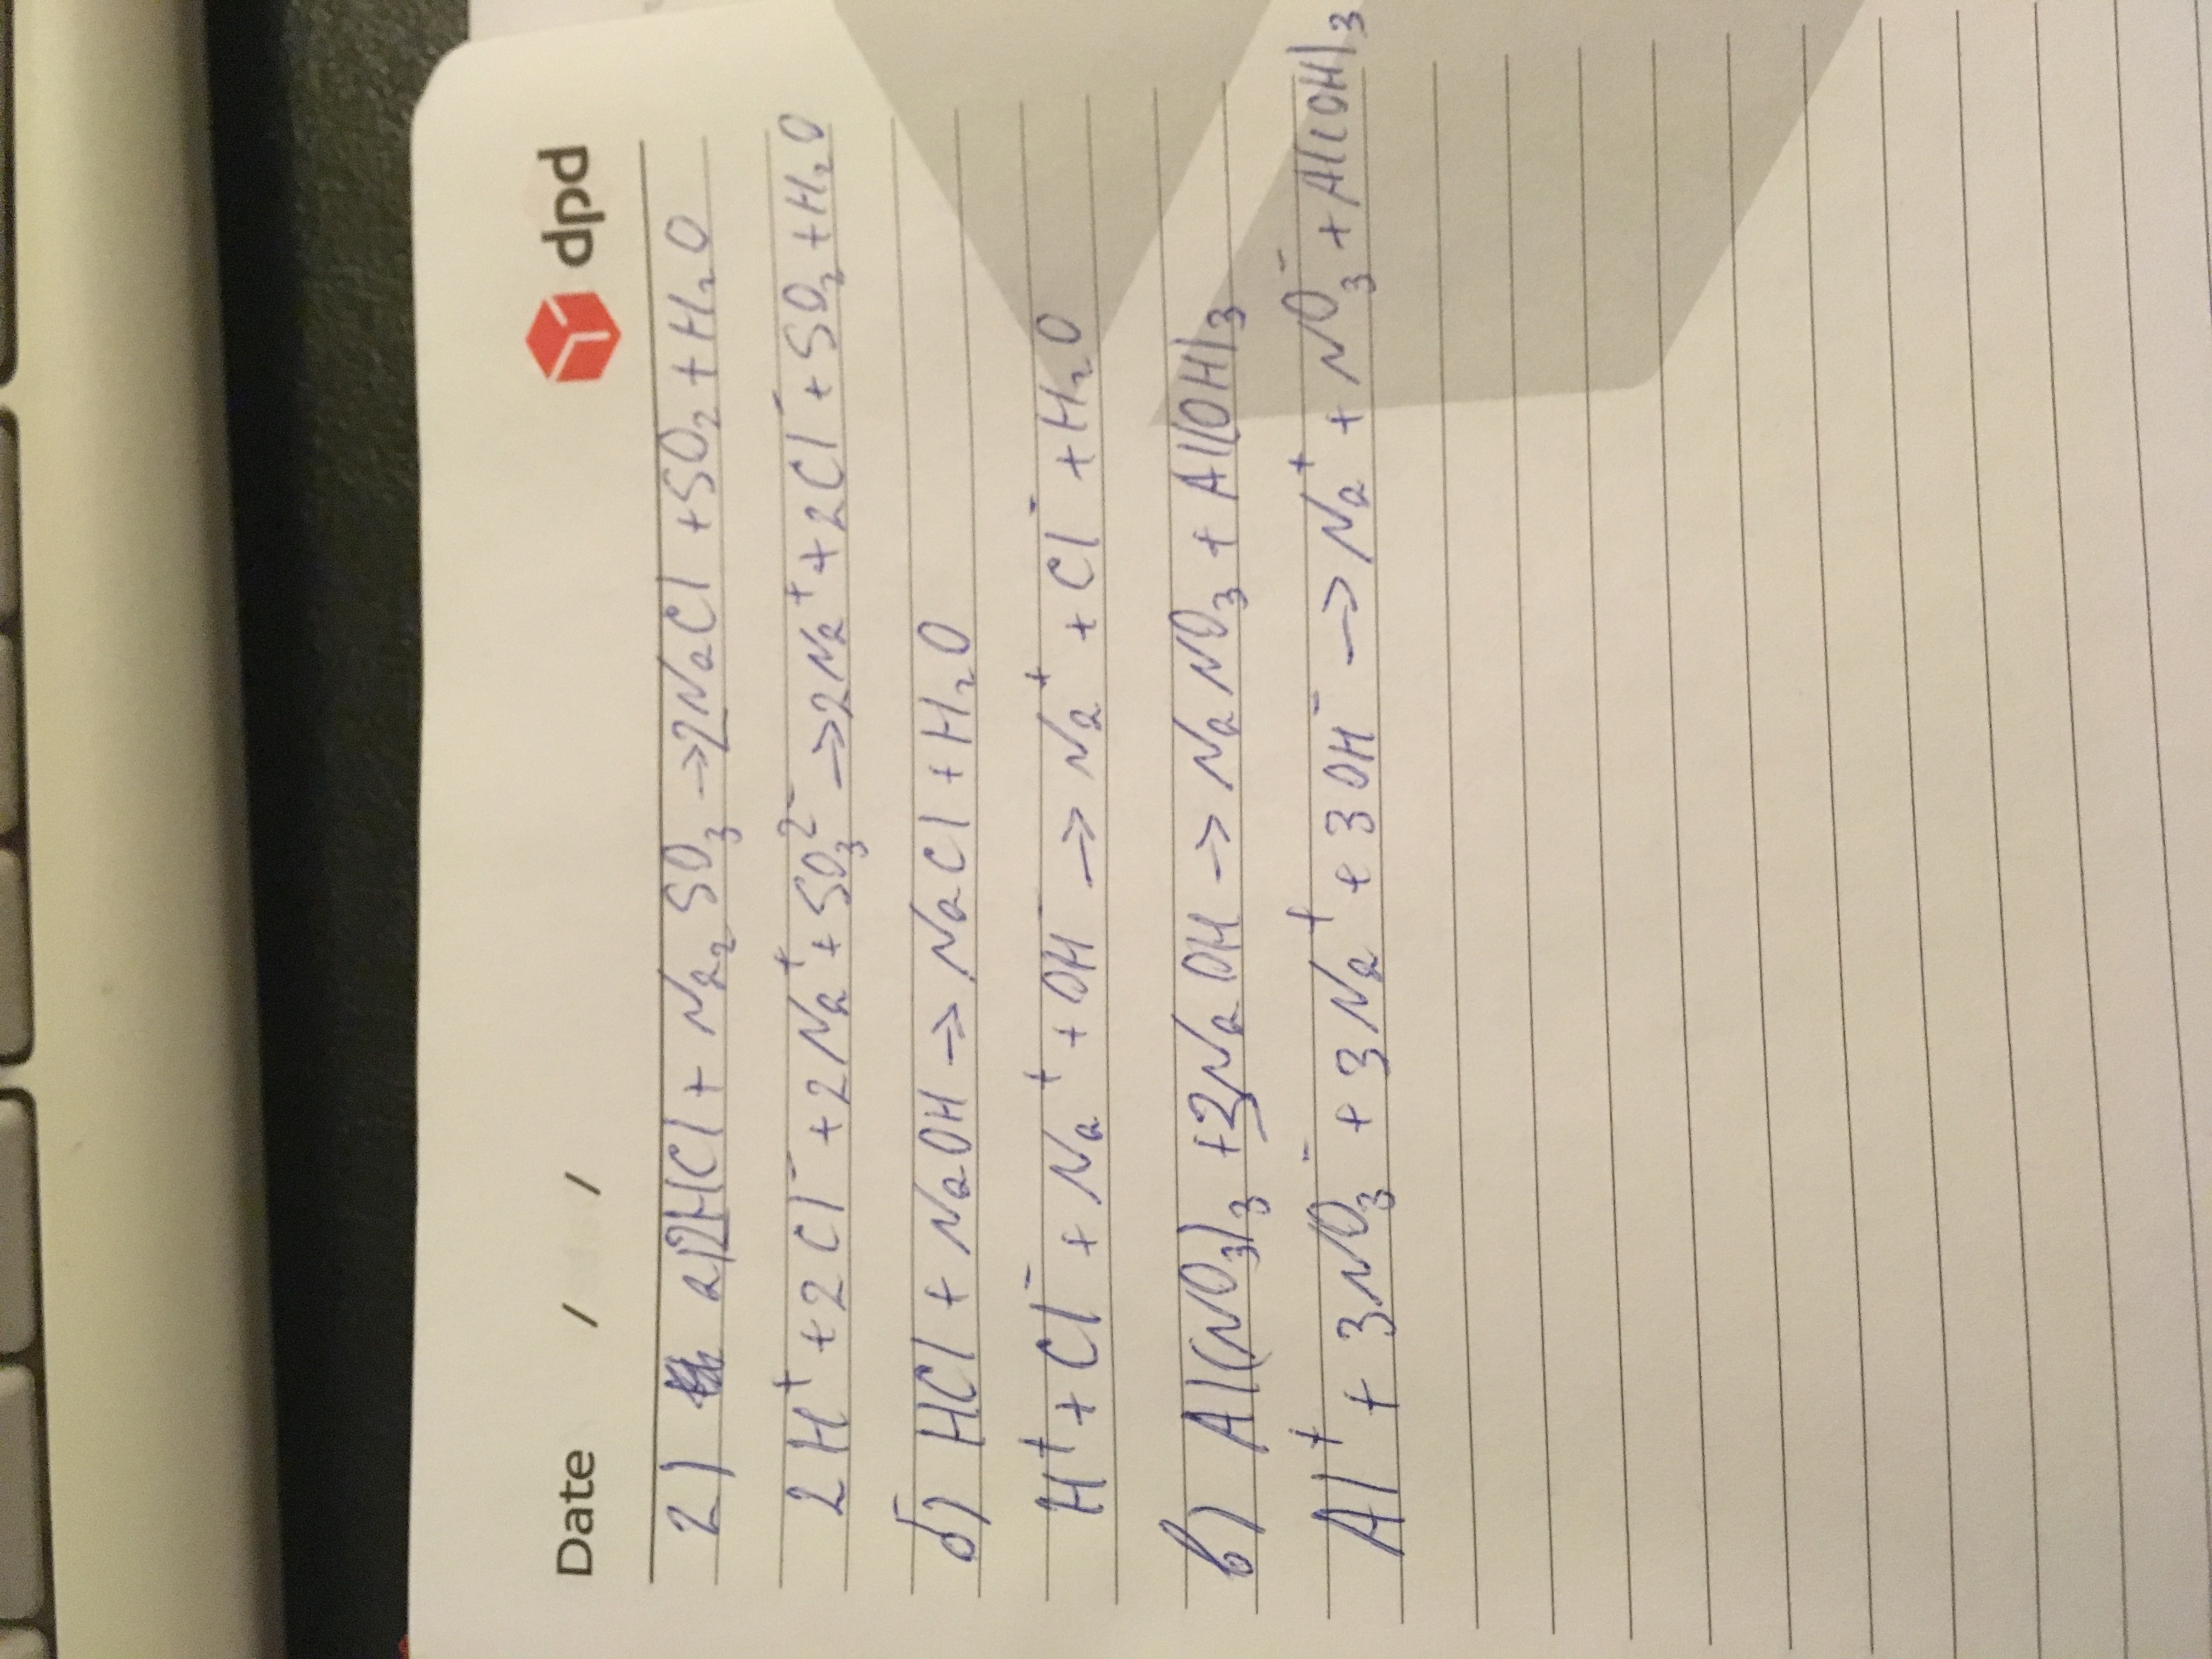 Date / / dpd
2) а) 2HCl + Na₂SO₃ → 2NaCl + SO₂ + H₂O
2H⁺ + 2Cl⁻ + 2Na⁺ + SO₃²⁻ → 2Na⁺ + 2Cl⁻ + SO₂ + H₂O
б) HCl + NaOH → NaCl + H₂O
H⁺ + Cl⁻ + Na⁺ + OH⁻ → Na⁺ + Cl⁻ + H₂O
в) Al(NO₃)₃ + 3NaOH → NaNO₃ + Al(OH)₃
Al⁺ + 3NO₃⁻ + 3Na⁺ + 3OH⁻ → Na⁺ + NO₃⁻ + Al(OH)₃